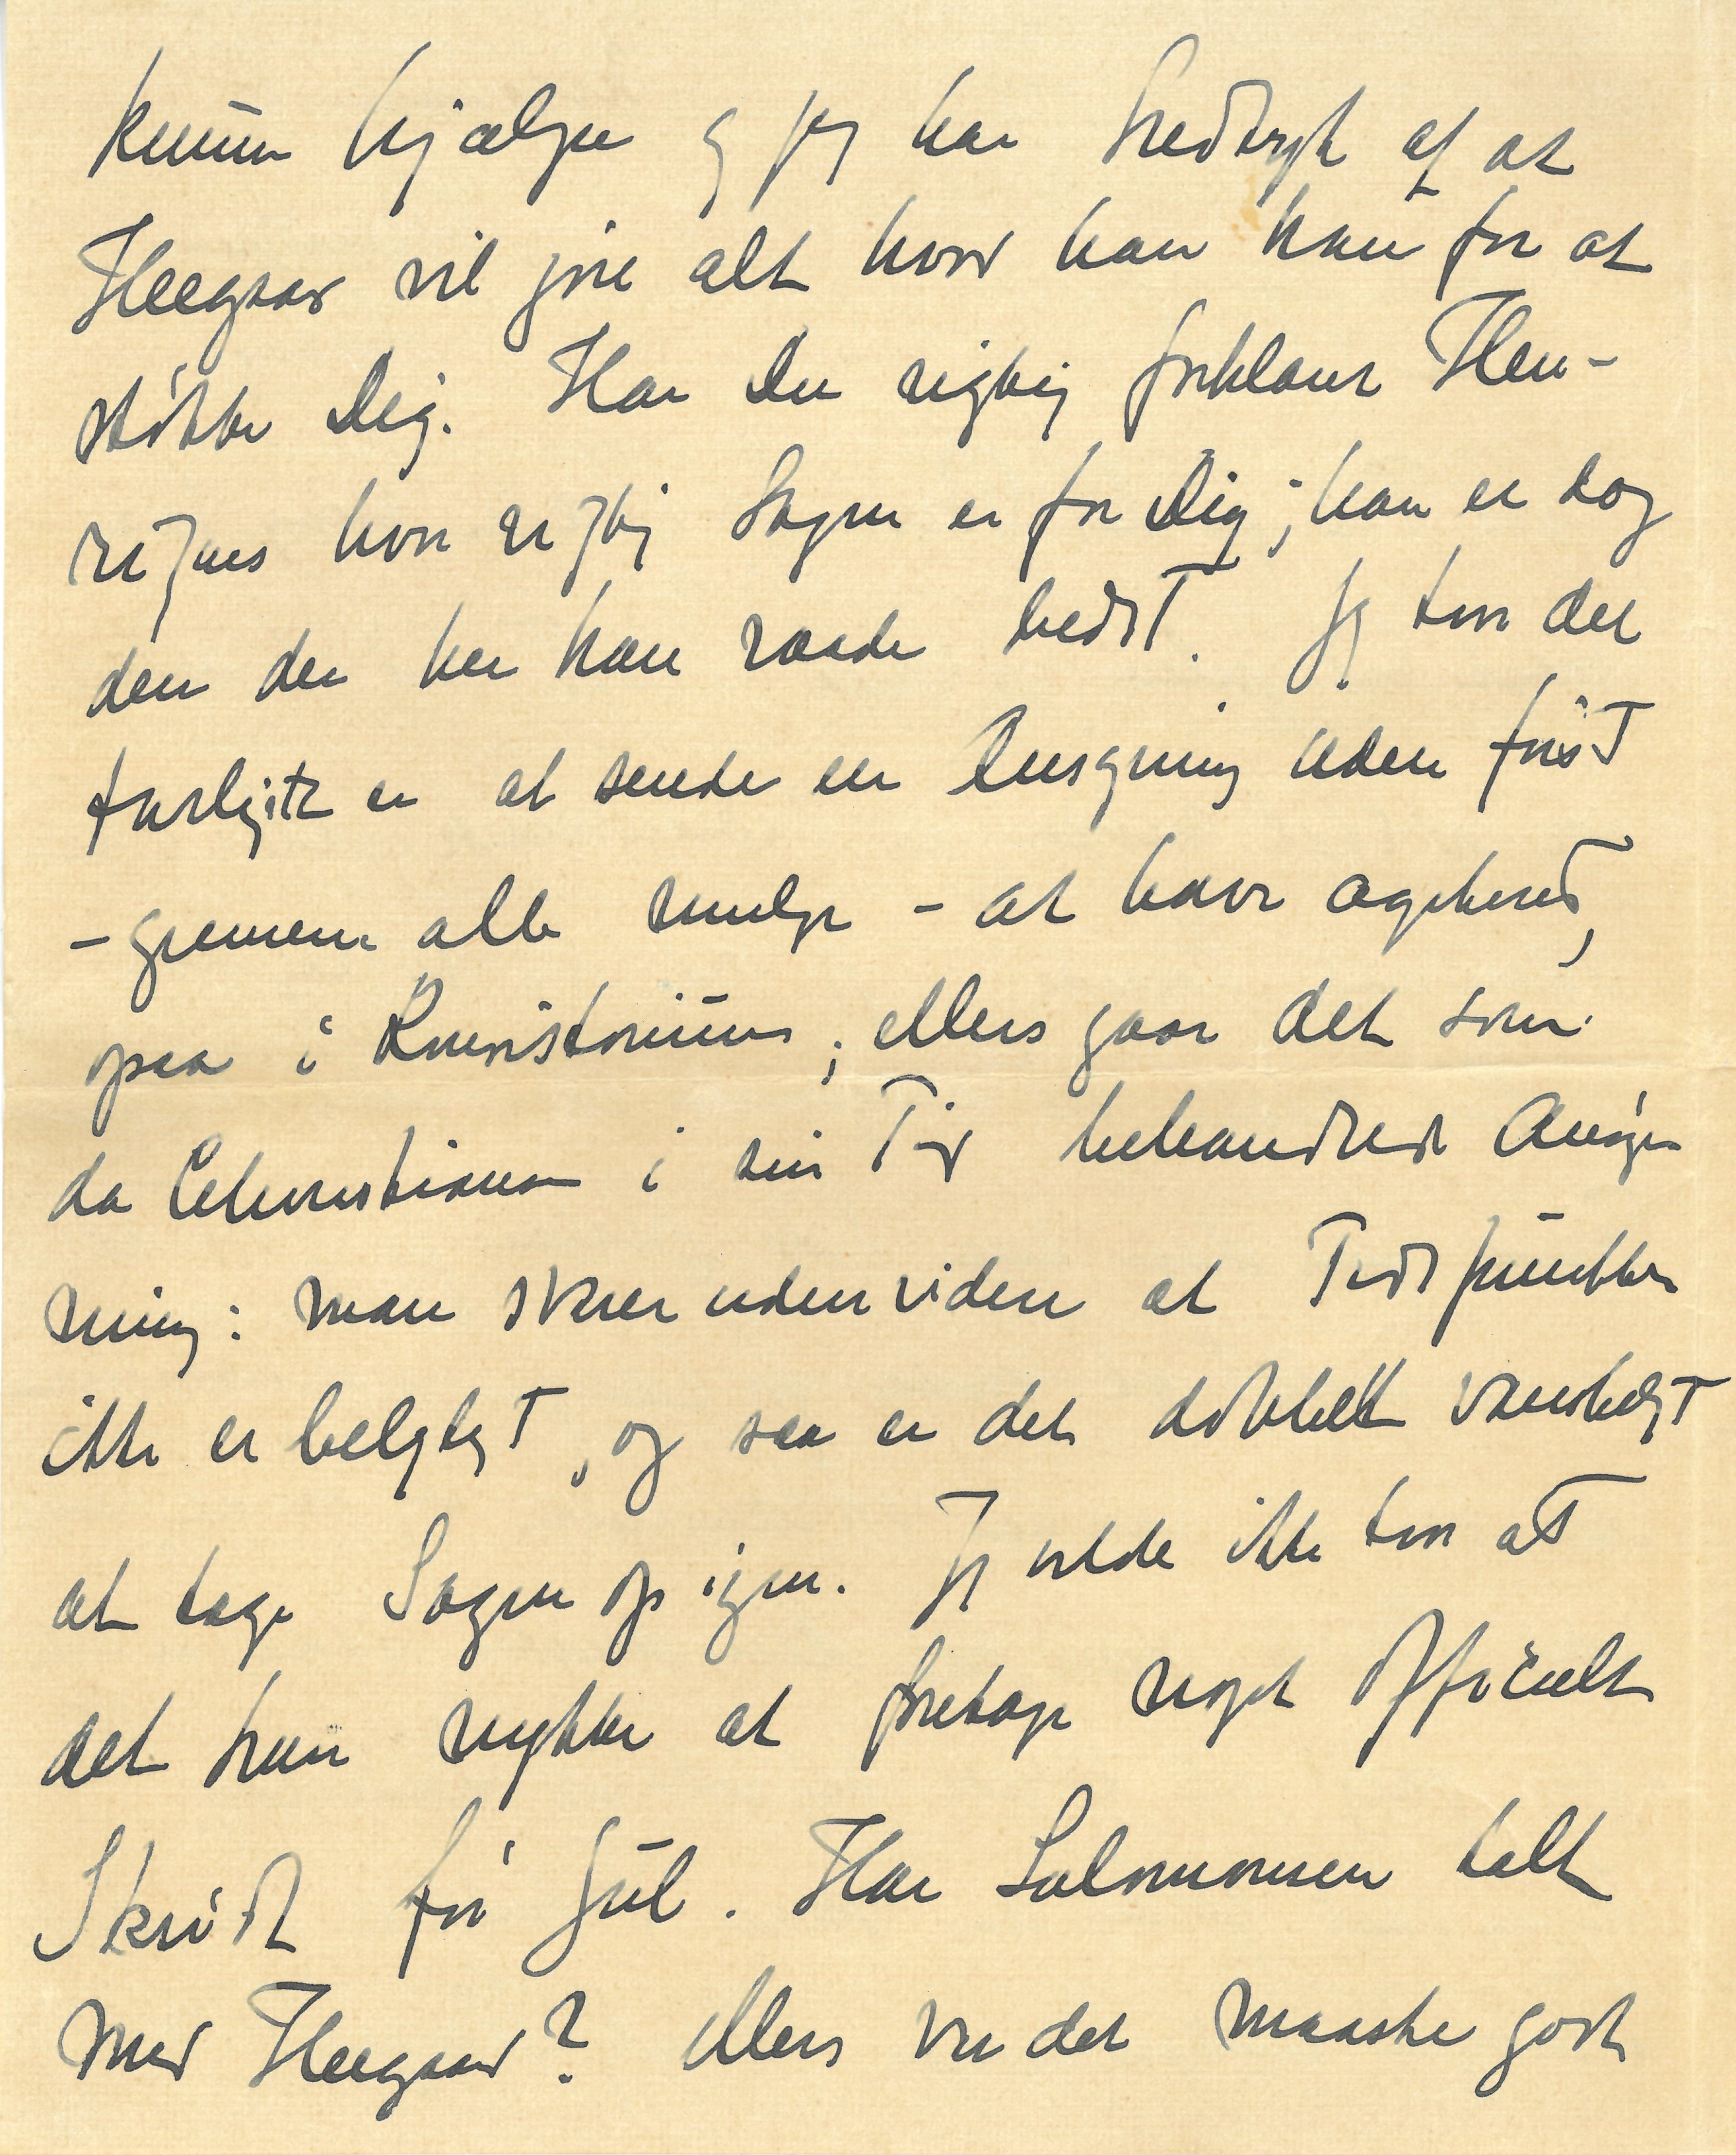 kunne hjælpe og jeg har Indtryk af at
Heegaar vil gøre alt hvad han kan for at
støtte Dig. Har Du rigtig forklaret Hen-
riques hvor vigtig Sagen er for Dig; han er dog
den der her kan raade bedst. Jeg tror det
farligste er at sende en Ansøgning uden først
– gennem alle mulige – at have ageteret,
ogsaa i Konsistorium; ellers gaar det som
da Christiansen i sin Tid behandlede Ansøg
ning: man skrev uden videre at Tidspunktet
ikke er belejligt, og saa er det dobbelt vanskeligt
at tage Sagen op igen. Jeg vilde ikke tro at
det kan nytte at foretage noget officielt
Skridt før Jul. Har Salomonsen talt
med Heegaard? Ellers var det maaske godt